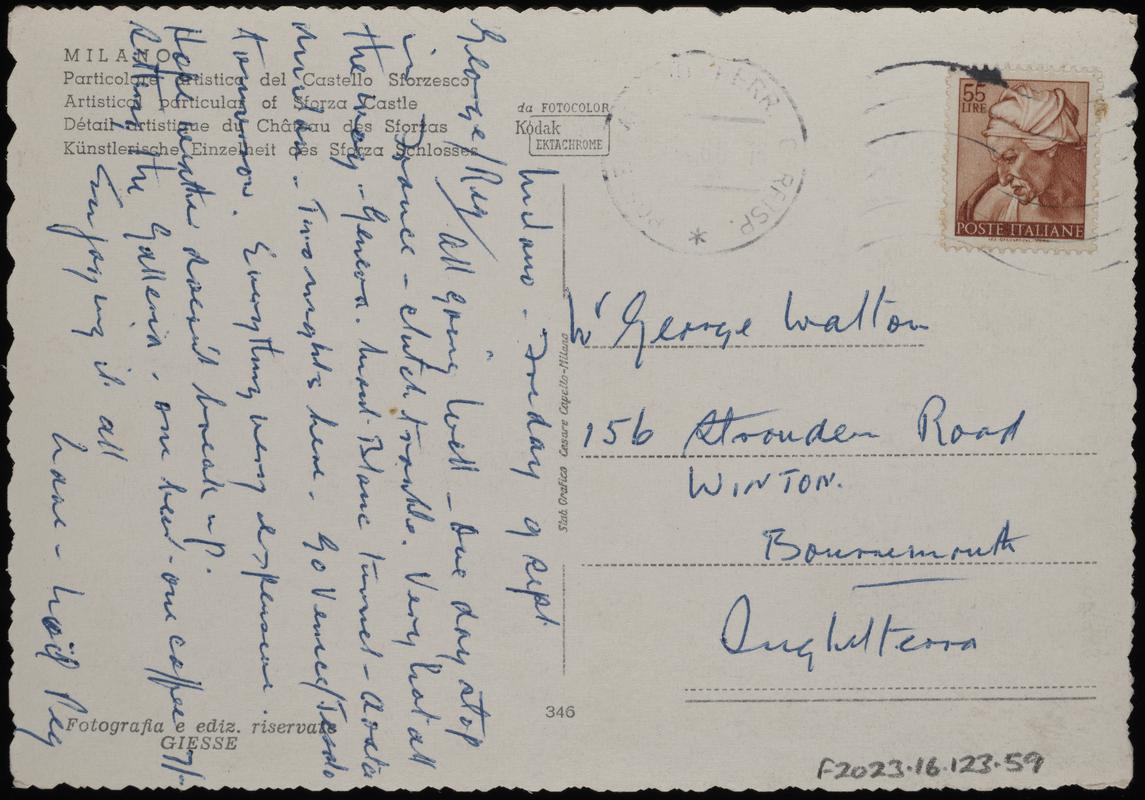 MILANO
Particolare artistica del Castello Sforzesco
Artistica particular of Sforza Castle
Détail artistique du Château des Sforzas
Künstlerische Einzelheit des Sforza Schlosses
da FOTOCOLOR
Kodak
EKTACHROME
55
LIRE
POSTE ITALIANE
Milano - Tuesday 9 Sept
George/Reg/ All going well - One day stop
in France - clutch trouble. Very hot all
the way - Geneva. Mont-Blanc tunnel - Aosta
Milan. Two nights here. Go Venice/
tomorrow. Everything very expensive.
Hope weather doesn't break up.
Sitting in the Galleria. one beer - one coffee
Enjoying it all
Peg
Stab. Grafico Cesare Capello-Milano
George Walton
156 Strouden Road
WINTON.
Bournemouth
Inghilterra
346
Fotografia e ediz. riservate
GIESSE
F2023.16.123.59